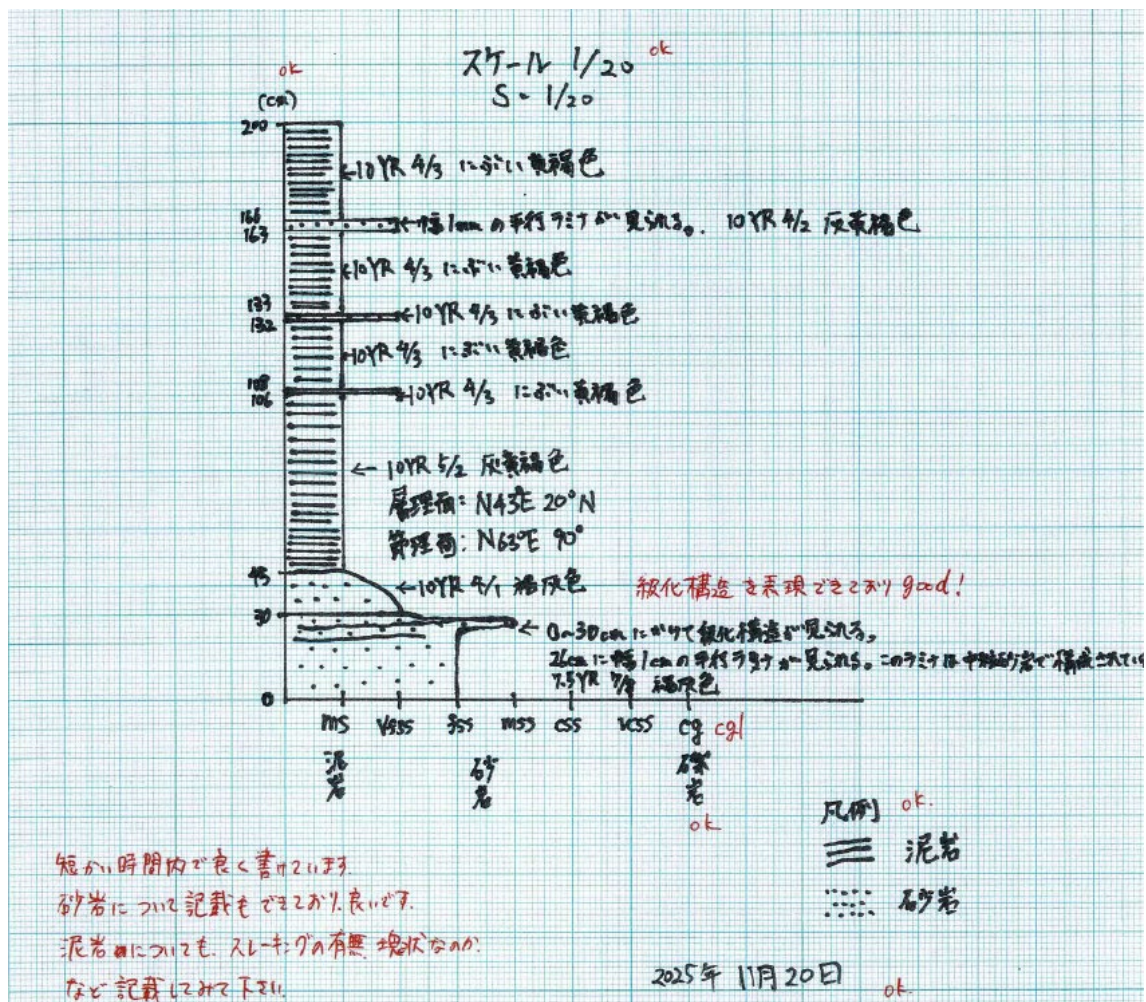 スケール 1/20 ok
S = 1/20
ok
(cm)
200
←10YR 4/3 にぶい黄褐色
166
163
←幅1cmの平行ラミナが見られる。 10YR 4/2 灰黄褐色
←10YR 4/3 にぶい黄褐色
133
132
←10YR 4/3 にぶい黄褐色
←10YR 4/3 にぶい黄褐色
108
106
←10YR 4/3 にぶい黄褐色
← 10YR 5/2 灰黄褐色
層理面: N43°E 20°N
節理面: N63°E 90°
45
←10YR 4/1 褐灰色
級化構造を表現できており good!
30
← 0~30cmにかけて級化構造が見られる。
26cmに幅1cmの平行ラミナが見られる。このラミナは中粒砂岩で構成されてい
7.5YR 褐灰色
0
ms vfss fss mss css vcss cg cgl
泥岩 砂岩 礫岩
ok
凡例 ok.
泥岩
砂岩
短かい時間内で良く書けています.
砂岩について記載もできており、良いです.
泥岩についても、スレーキングの有無 塊状なのか
など記載してみて下さい.
2025年 11月 20日 ok.